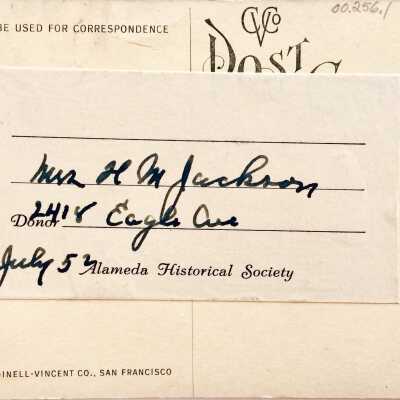 00.256.1
BE USED FOR CORRESPONDENCE
CVCo
POST C
Mrs H M Jackson
2418 Eagle Ave
Donor
July 52
Alameda Historical Society
DINELL-VINCENT CO., SAN FRANCISCO